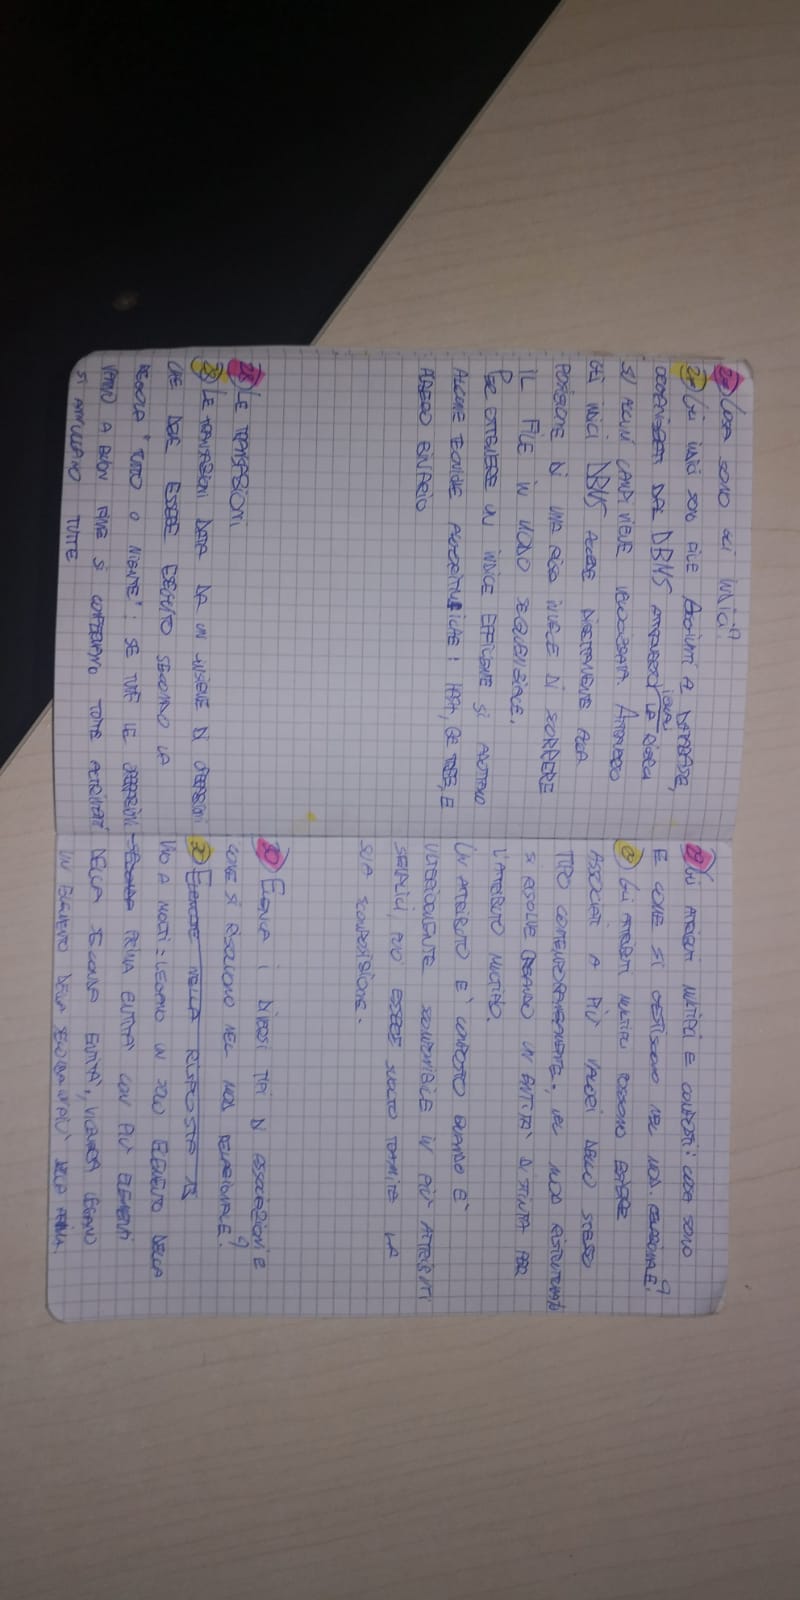 27) COSA SONO GLI INDICI?
27) GLI INDICI SONO FILE AGGIUNTI A DATABASE,
DAL DBMS ATTRAVERSO LA
SU ALCUNI CAMPI VIENE VELOCIZZATA. ATTRAVERSO
GLI INDICI DBMS ACCEDE DIRETTAMENTE ALLA
POSIZIONE DI UNA RIGA INVECE DI SCORRERE
IL FILE IN MODO SEQUENZIALE.
PER OTTENERE UN INDICE EFFICIENTE SI ADOTTANO
ALCUNE TECNICHE ALGORITMICHE: TREE, E
ALBERO BINARIO
28) LE TRANSAZIONI
28) LE TRANSAZIONI DATA DA UN INSIEME DI OPERAZIONI
CHE DEVE ESSERE ESEGUITO SECONDO LA
REGOLA "TUTTO O NIENTE": SE TUTTE LE OPERAZIONI
VANNO A BUON FINE SI CONFERMANO TUTTE ALTRIMENTI
SI ANNULLANO TUTTE
29) GLI ATTRIBUTI MULTIPLI E COMPOSTI: COSA SONO
E COME SI GESTISCONO NEL MOD. RELAZIONALE?
29) GLI ATTRIBUTI MULTIPLI POSSONO ESSERE
ASSOCIATI A PIÙ VALORI DELLO STESSO
TIPO CONTEMPORANEAMENTE. NEL MOD RISTRUTTURATO
SI RISOLVE CREANDO UN ENTITÀ DISTINTA PER
L'ATTRIBUTO MULTIPLO.
UN ATTRIBUTO È COMPOSTO QUANDO È
ULTERIORMENTE SCOMPONIBILE IN PIÙ ATTRIBUTI
SEMPLICI, PUÒ ESSERE SVOLTO TRAMITE LA
SUA SCOMPOSIZIONE.
30) ELENCA I DIVERSI TIPI DI ASSOCIAZIONI E
COME SI RISOLVONO NEL MOD RELAZIONALE?
30) NELLA RISPOSTA 13
UNO A MOLTI: LEGANO UN SOLO ELEMENTO DELLA
PRIMA ENTITÀ CON PIÙ ELEMENTI
DELLA SECONDA ENTITÀ, LEGANO
UN ELEMENTO DELLA SECONDA A PIÙ DELLA PRIMA.